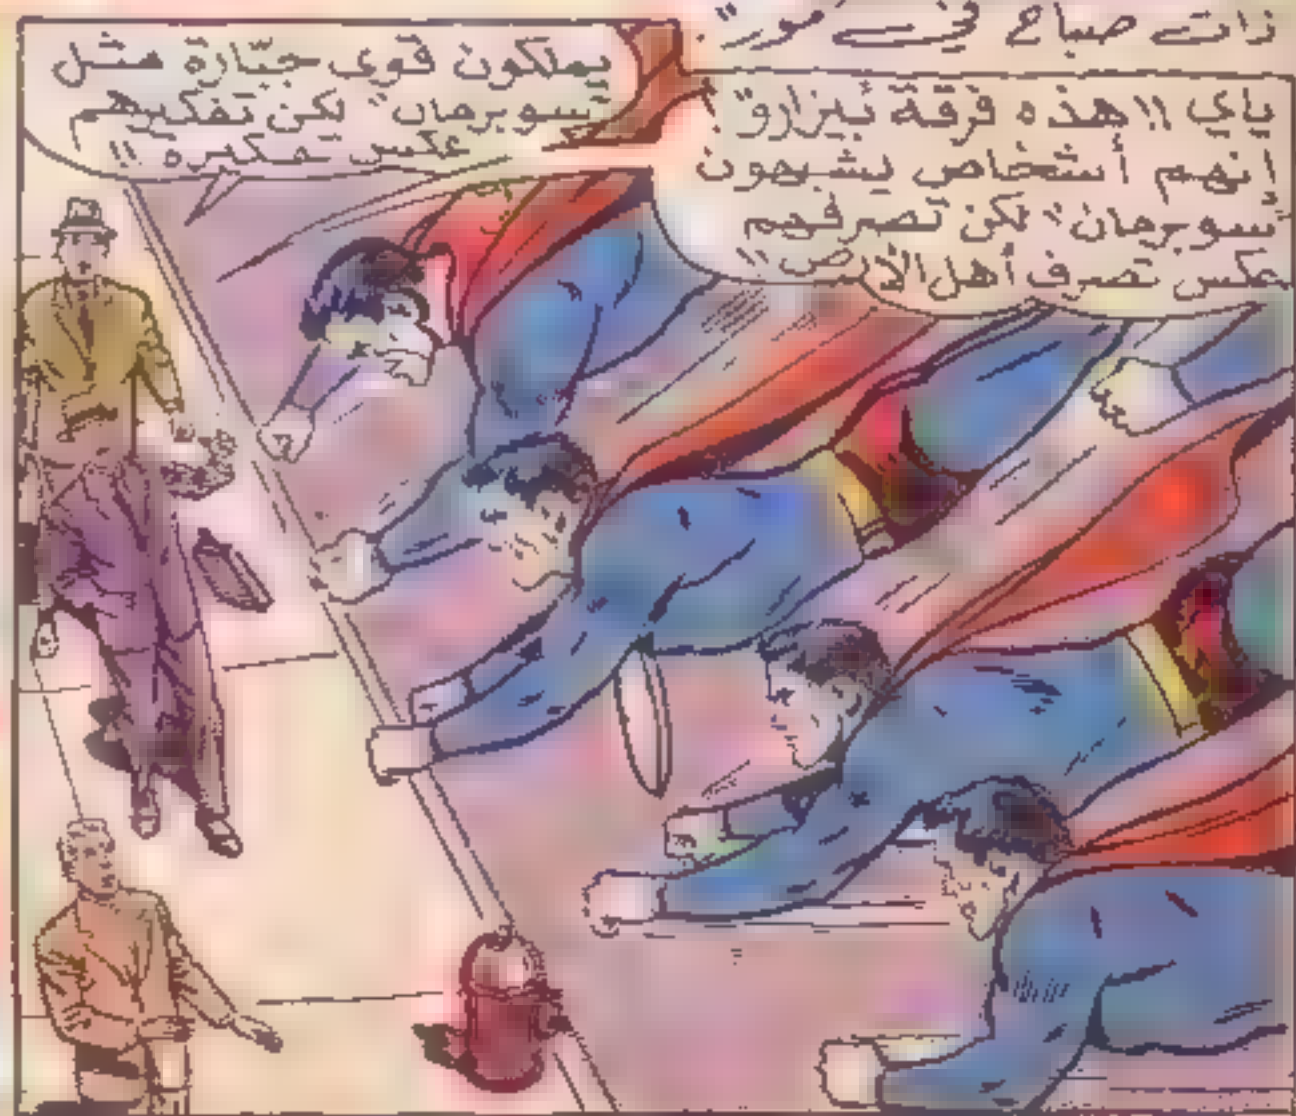 ذات صباح في "مور"
ياي !! هذه فرقة "بيزارو"
إنهم أشخاص يشبهون
"سوبرمان" لكن تصرفهم
عكس تصرف أهل الأرض !!
يملكون قوى جبّارة مثل
"سوبرمان" لكن تفكيرهم
عكس تفكيره !!